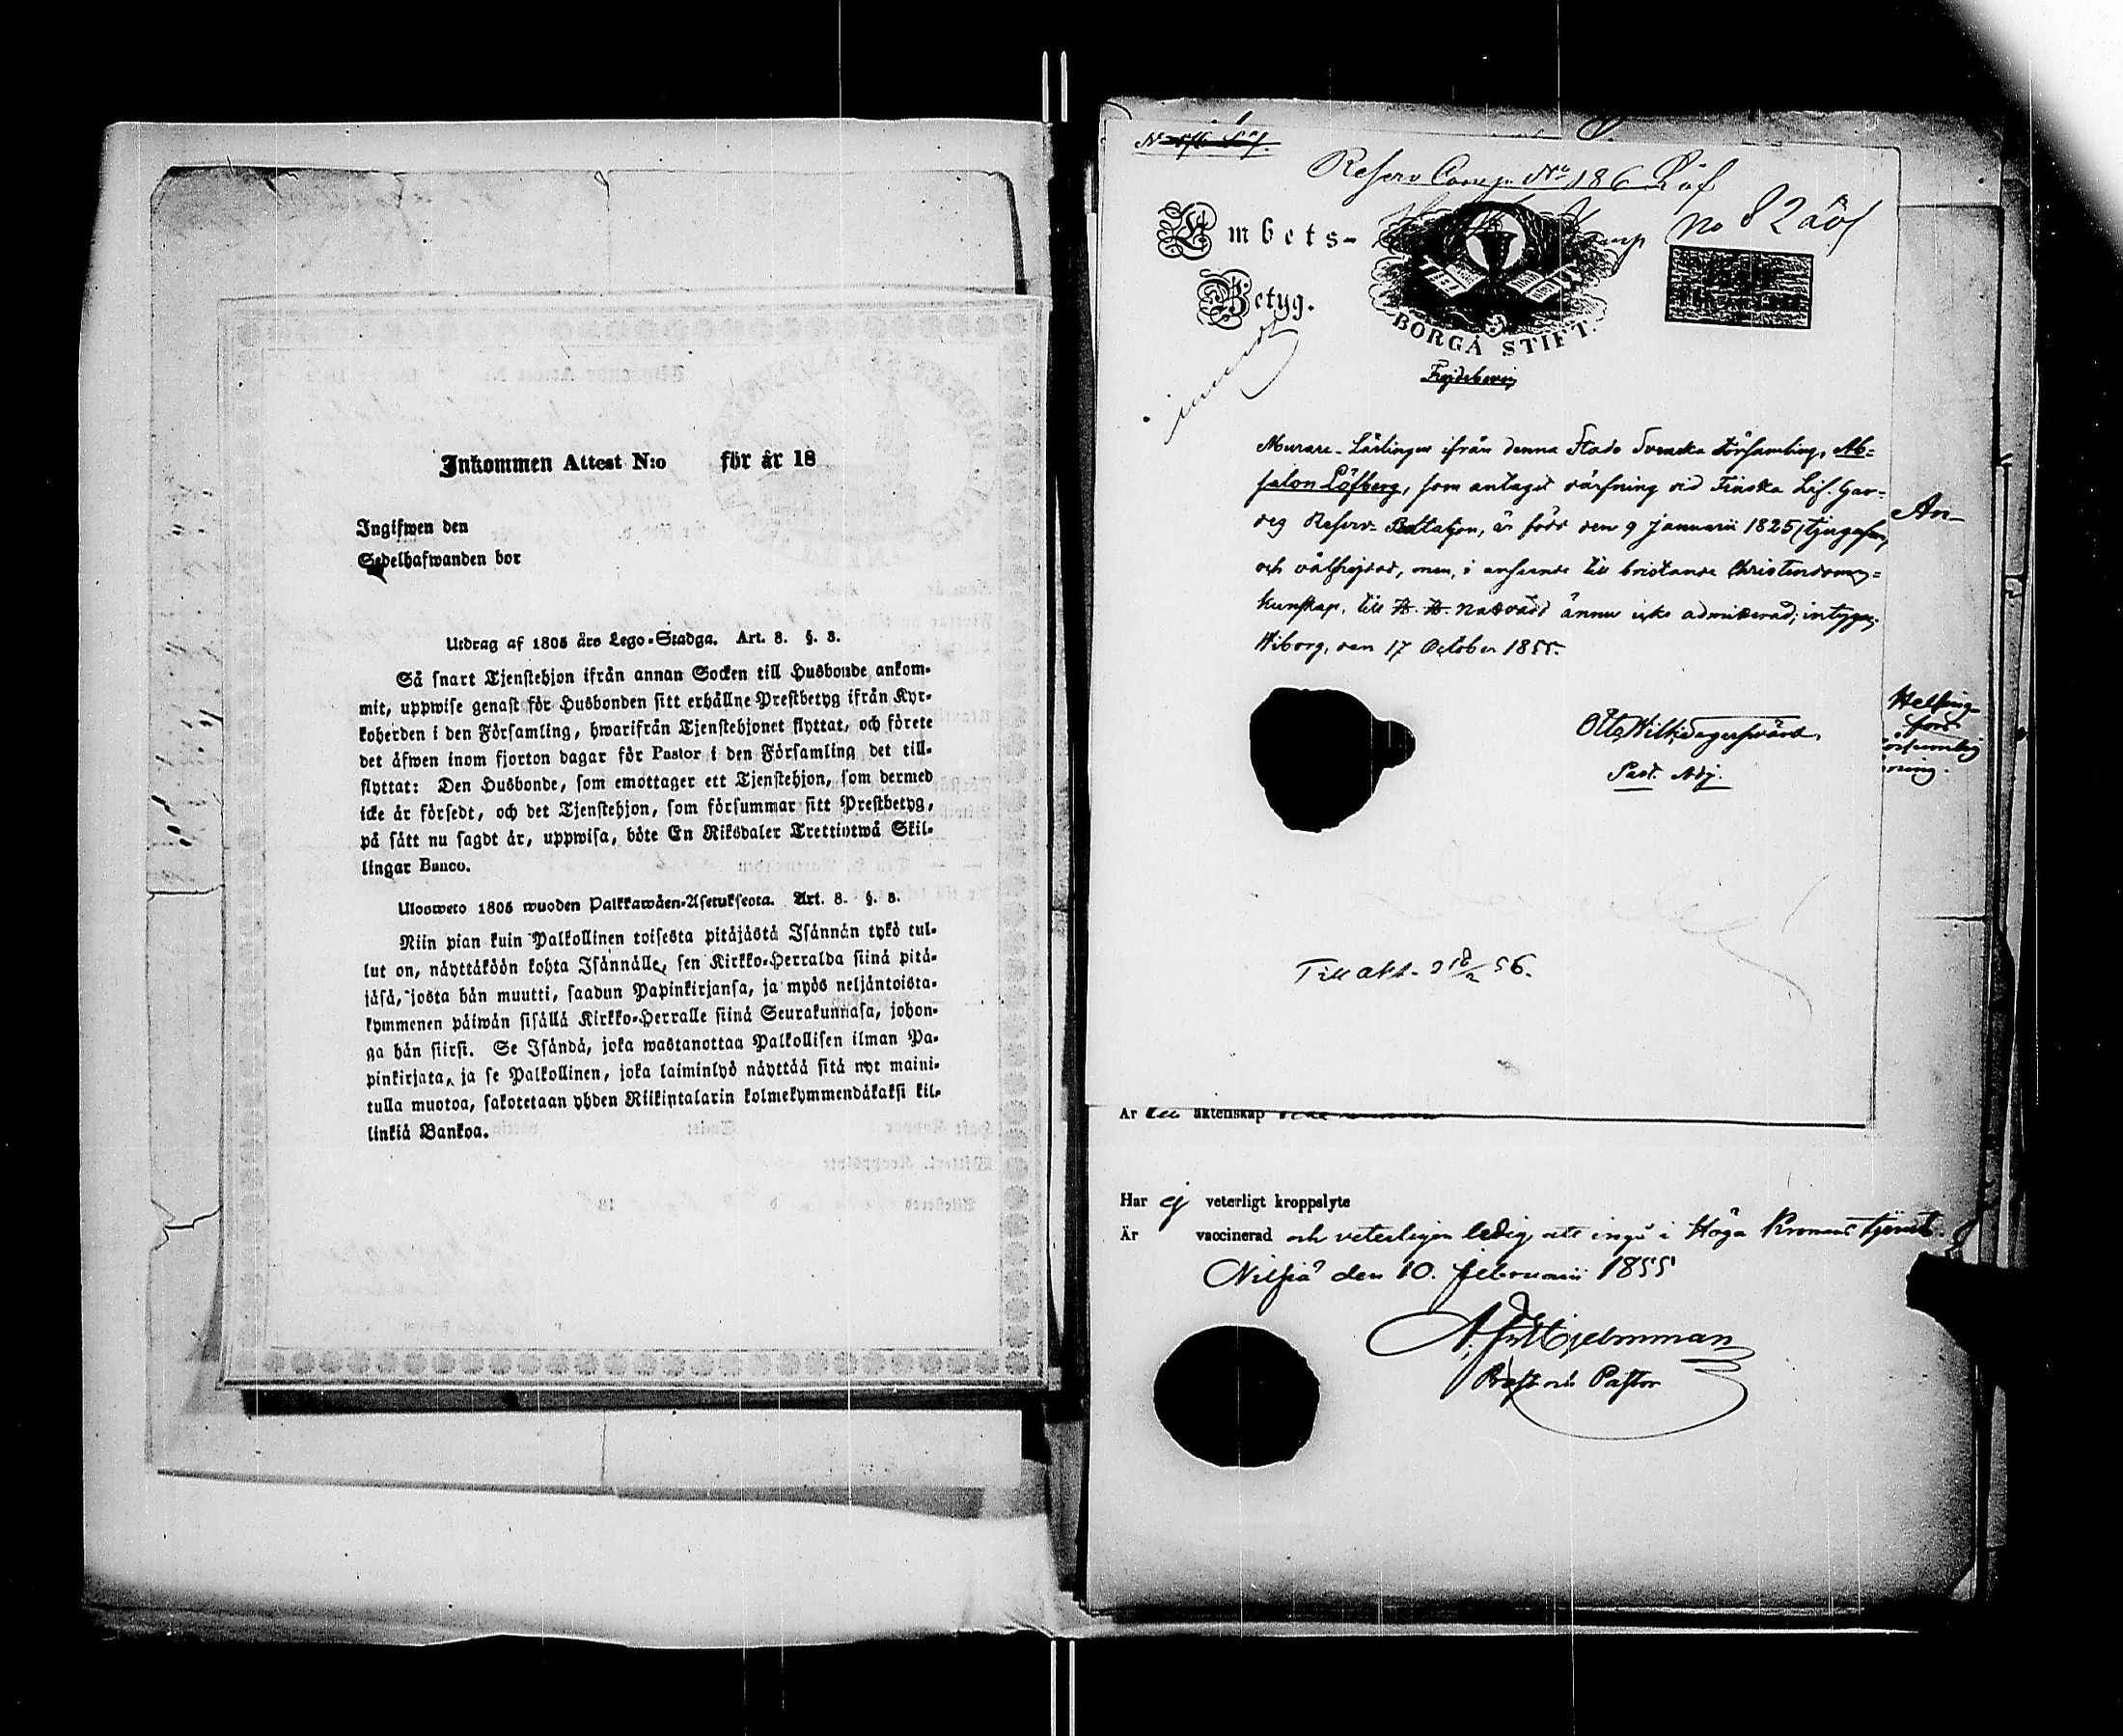 Inkommen Attest N:o för år 18
Ingifwen den
Sedelhafwanden bor
Utdrag af 1805 års Lego-Stadga. Art. 8. §. 3.
Så snart Tjenstehjon ifrån annan Socken till Husbonde ankom-
mit, uppwise genast för Husbonden sitt erhållne Prestbetyg ifrån Kyr-
koherden i den Församling, hwarifrån Tjenstehjonet flyttat, och förete
det äfwen inom fjorton dagar för Pastor i den Församling det till-
flyttat: Den Husbonde, som emottager ett Tjenstehjon, som dermed
icke är försedt, och det Tjenstehjon, som försummar sitt Prestbetyg,
på sätt nu sagdt är, uppwisa, böte En Riksdaler Trettiotwå Skil-
lingar Banco.
Ulosweto 1805 wuoden Palkkawäen-Asetuksesta. Art. 8. §. 3.
Niin pian kuin Palkollinen toisesta pitäjästä Isännän tykö tul-
lut on, näyttäköön kohta Isännälle, sen Kirkko-Herralda siinä pitä-
jäsä, josta hän muutti, saadun Papinkirjansa, ja myös neljäntoista-
kymmenen päiwän sisällä Kirkko-Herralle siinä Seurakunnasa, johon-
ga hän siirsi. Se Isändä, joka wastanottaa Palkollisen ilman Pa-
pinkirjata, ja se Palkollinen, joka laiminlyö näyttää sitä nyt maini-
tulla muotoa, sakotetaan yhden Riikintalarin kolmekymmendäkaksi kil-
linkiä Bankoa.
Reserv Comp. No 186 Löf
No 82
Embets-
Betyg.
BORGÅ STIFT.
Frejdebevis
Murare-Lärlingen ifrån denna Stads Svenska Församling, Ab-
salon Löfberg, som antagit värfning vid Finska Lif-Gar-
des Reserv-Bataljon, är född den 9 Januarii 1825
och välfrejdad, men, i anseende till bristande Christendoms-
kunskap, till H. H. Nattvard ännu icke admitterad; intygas,
Wiborg, den 17 October 1855.
Past. Adj.
An-
Helsing-
fors
Till akt. d 18/2 56.
Är till äktenskap
Har ej veterligt kroppslyte
Är vaccinerad och veterligen ledig att ingå i Höga Kronans tjenst.
Nilsiä den 10. februarii 1855
Hjelmman
Prost och Pastor